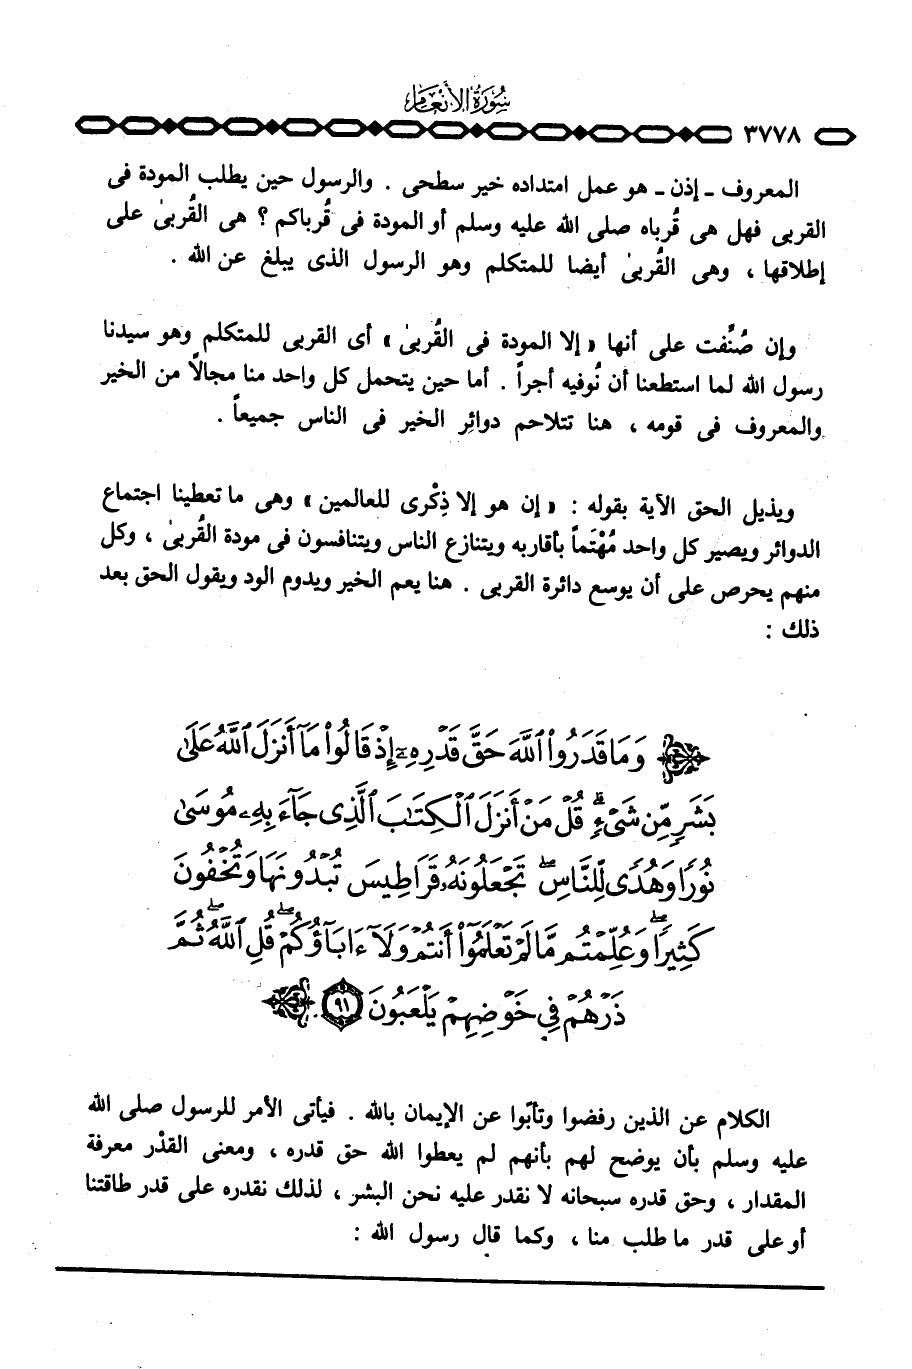 سُورَةُ الأَنْعَام
٣٧٧٨
المعروف ـ إذن ـ هو عمل امتداده خير سطحى . والرسول حين يطلب المودة فى
القربى فهل هى قُرباه صلى الله عليه وسلم أو المودة فى قُرباكم ؟ هى القُربىٰ على
إطلاقها ، وهى القُربىٰ أيضا للمتكلم وهو الرسول الذى يبلغ عن الله .
وإن صُنِّفت على أنها « إلا المودة فى القُربىٰ » أى القربى للمتكلم وهو سيدنا
رسول الله لما استطعنا أن نُوفيه أجراً . أما حين يتحمل كل واحد منا مجالاً من الخير
والمعروف فى قومه ، هنا تتلاحم دوائِر الخير فى الناس جميعاً .
ويذيل الحق الآية بقوله : « إن هو إلا ذِكْرى للعالمين » وهى ما تعطينا اجتماع
الدوائر ويصير كل واحد مُهْتَماً بأقاربه ويتنازع الناس ويتنافسون فى مودة القُربىٰ ، وكل
منهم يحرص على أن يوسع دائرة القربى . هنا يعم الخير ويدوم الود ويقول الحق بعد
ذلك :
وَمَا قَدَرُوا۟ ٱللَّهَ حَقَّ قَدْرِهِۦٓ إِذْ قَالُوا۟ مَآ أَنزَلَ ٱللَّهُ عَلَىٰ
بَشَرٍ مِّن شَىْءٍ ۗ قُلْ مَنْ أَنزَلَ ٱلْكِتَـٰبَ ٱلَّذِى جَآءَ بِهِۦ مُوسَىٰ
نُورًا وَهُدًى لِّلنَّاسِ ۖ تَجْعَلُونَهُۥ قَرَاطِيسَ تُبْدُونَهَا وَتُخْفُونَ
كَثِيرًا ۖ وَعُلِّمْتُم مَّا لَمْ تَعْلَمُوٓا۟ أَنتُمْ وَلَآ ءَابَآؤُكُمْ ۖ قُلِ ٱللَّهُ ۖ ثُمَّ
ذَرْهُمْ فِى خَوْضِهِمْ يَلْعَبُونَ ٩١
الكلام عن الذين رفضوا وتأبّوا عن الإيمان بالله . فيأتى الأمر للرسول صلى الله
عليه وسلم بأن يوضح لهم بأنهم لم يعطوا الله حق قدره ، ومعنى القدْر معرفة
المقدار ، وحق قدره سبحانه لا نقدر عليه نحن البشر ، لذلك نقدره على قدر طاقتنا
أو على قدر ما طلب منا ، وكما قال رسول الله :